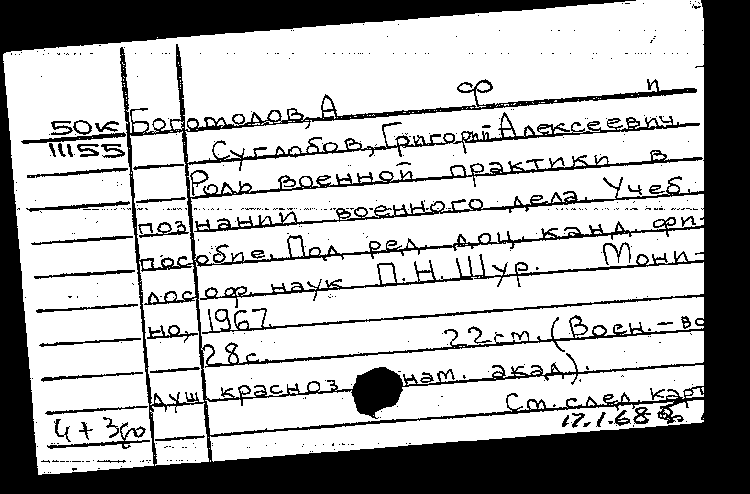 ф п
50к Богомолов, А
11155 Суглобов, Григорий Алексеевич
Роль военной практики в
познании военного дела. Учеб.
пособие. Под ред. доц. канд. фи-
лософ. наук П.Н. Шур. Мони-
но, 1967.
28 с. 22 см. (Воен.-во
душ краснознам. акад.).
См. след. карт
4+3 17.1.68